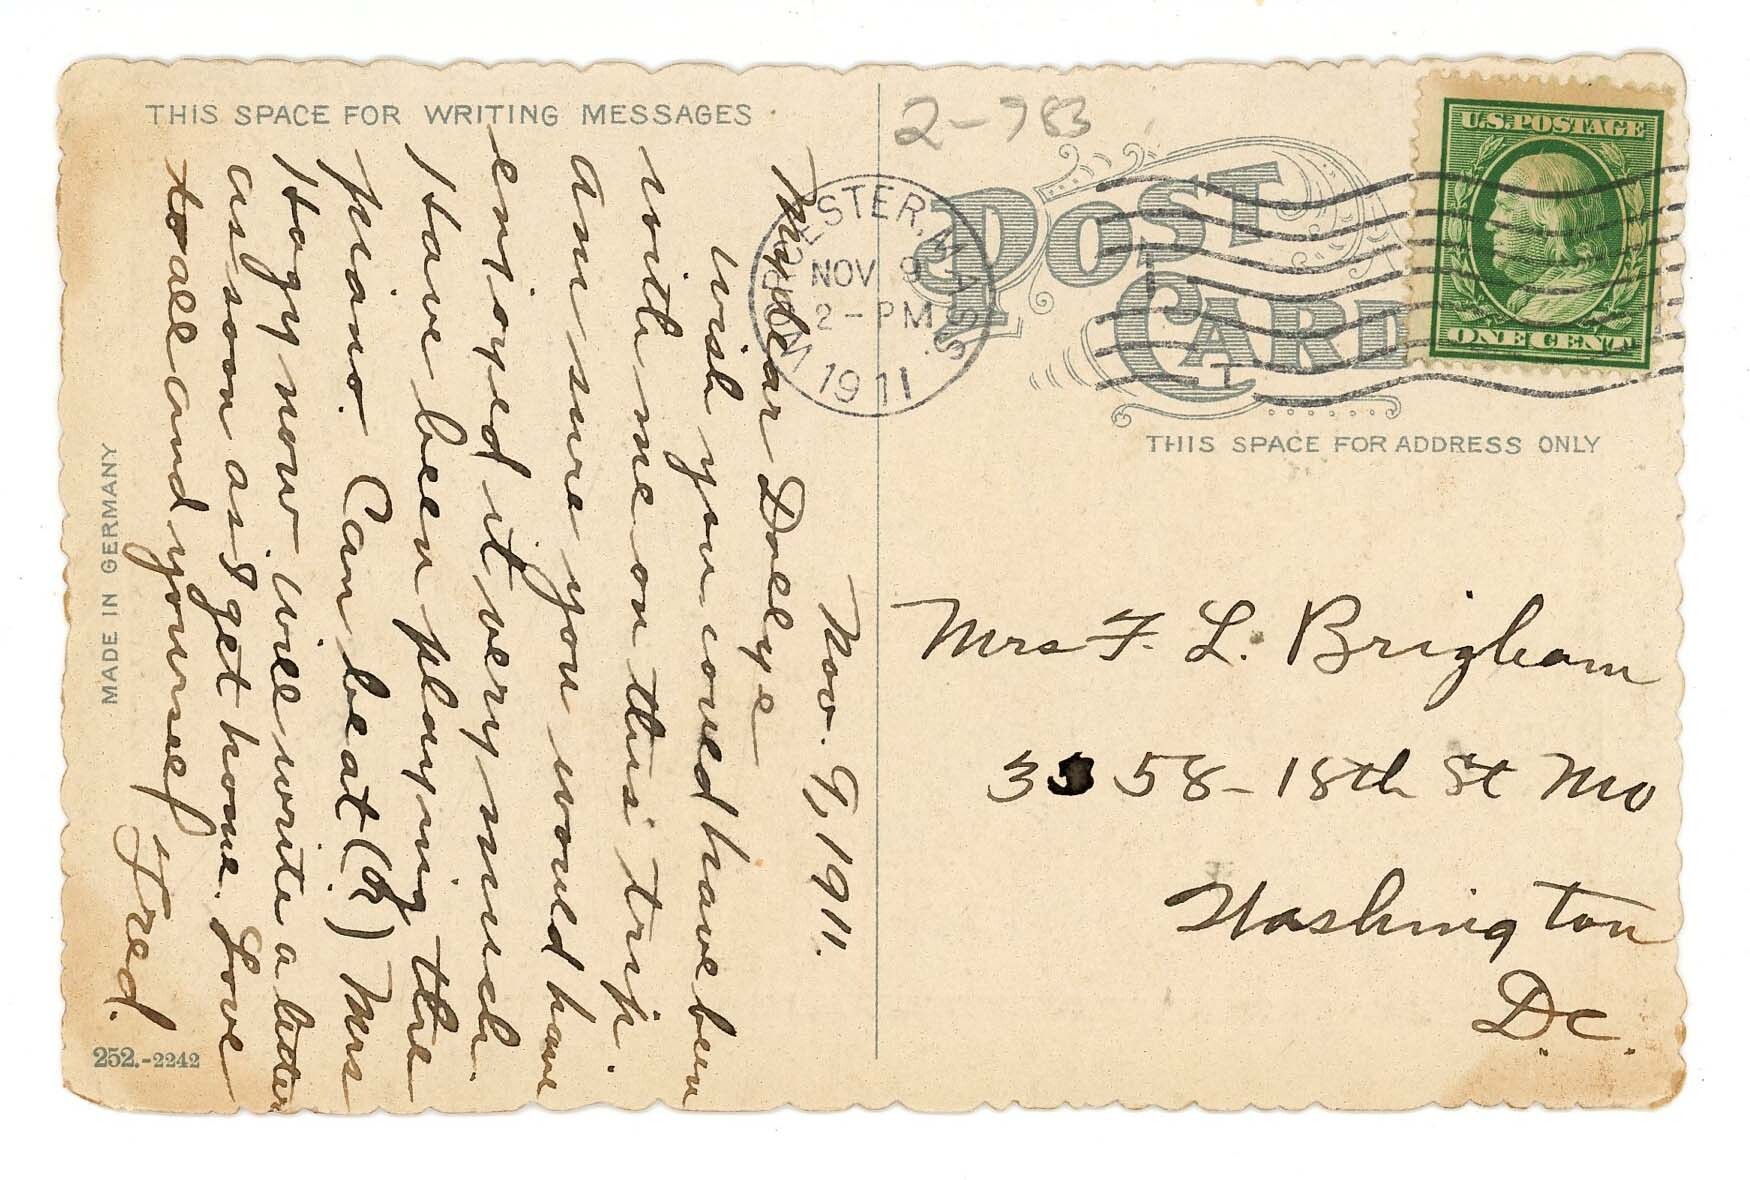 THIS SPACE FOR WRITING MESSAGES
Nov. 9, 1911.
My dear Dollye
Wish you could have been
with me on this trip.
Am sure you would have
enjoyed it very much.
Have been playing the
piano. Can beat (?) Mrs
Hagy now. Will write a letter
as soon as I get home. Love
to all and yourself
Fred.
MADE IN GERMANY
252.-2242
2-783
POST CARD
WINCHESTER, MASS.
NOV 9
2-PM
1911
U.S. POSTAGE
ONE CENT
THIS SPACE FOR ADDRESS ONLY
Mrs F. L. Brigham
3 58 - 18th St
Washington
D.C.